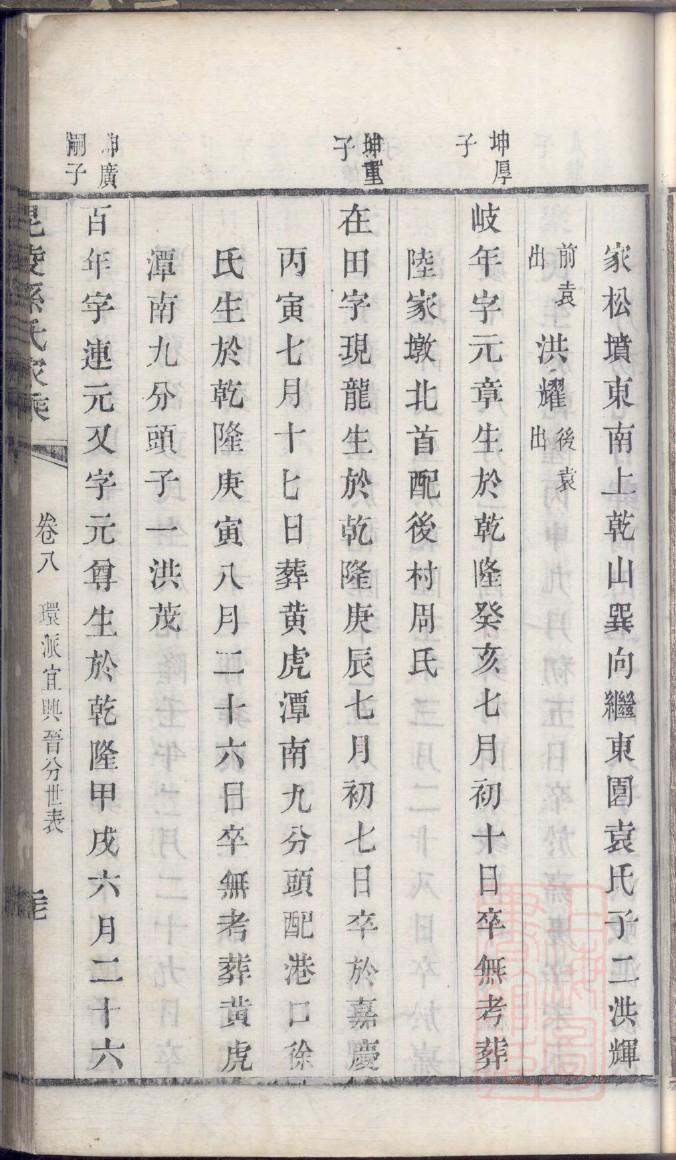 家松墳東南上乾山巽向繼東園袁氏子二洪輝
前袁出 洪耀 後袁出
坤厚子
岐年字元章生於乾隆癸亥七月初十日卒無考葬
陸家墩北首配後村周氏
坤重子
在田字現龍生於乾隆庚辰七月初七日卒於嘉慶
丙寅七月十七日葬黃虎潭南九分頭配港口徐
氏生於乾隆庚寅八月二十六日卒無考葬黃虎
潭南九分頭子一洪茂
坤廣嗣子
百年字連元又字元尊生於乾隆甲戌六月二十六
毘陵孫氏家乘
卷八 環派宜興晉分世表